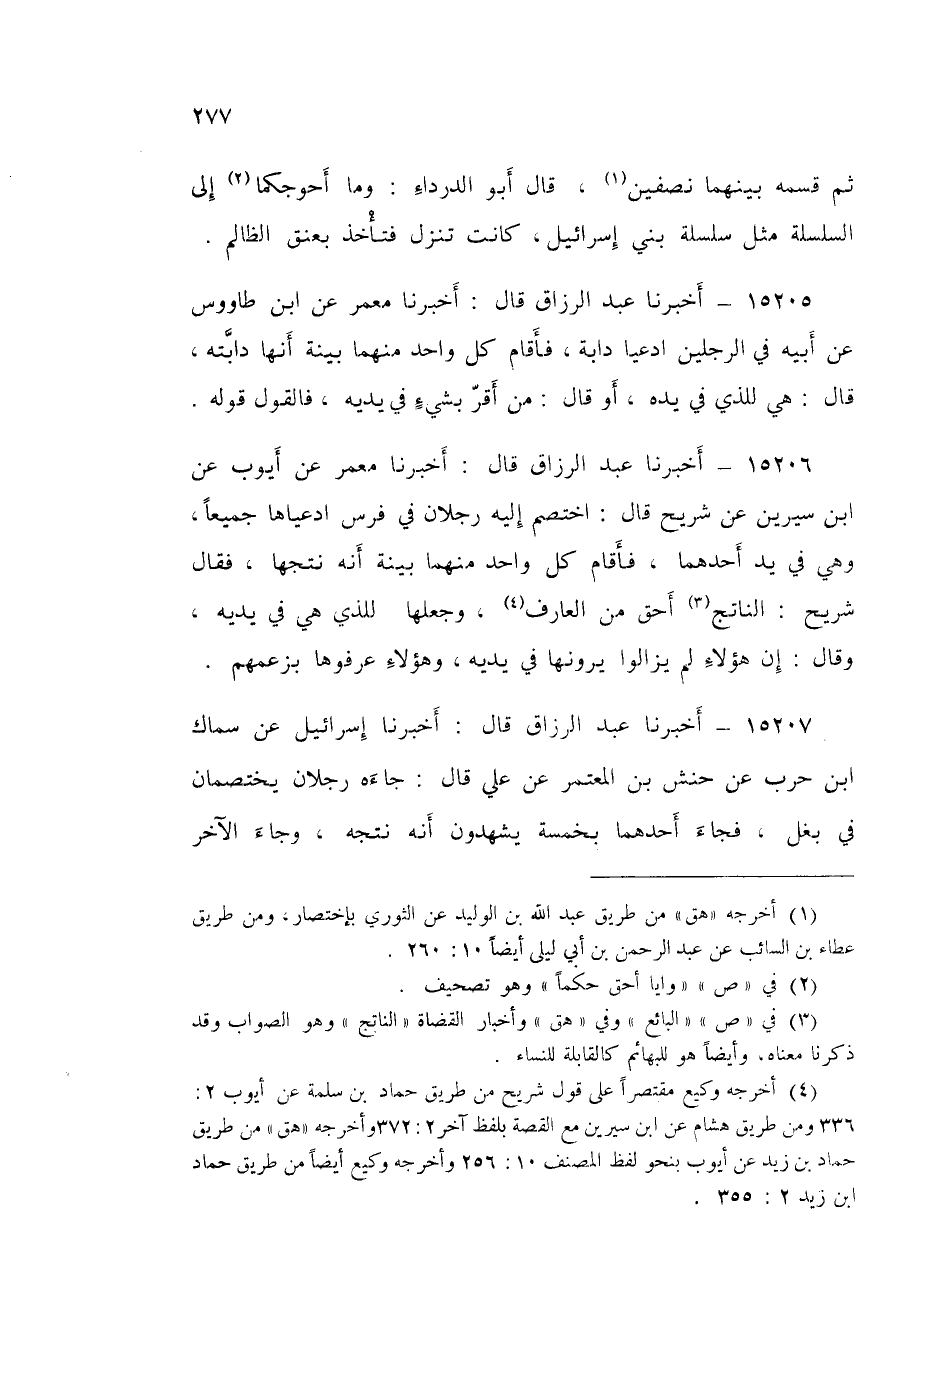 ٢٧٧
ثم قسمه بينهما نصفين(١) ، قال أَبو الدرداءِ : وما أَحوجكما(٢) إِلى
السلسلة مثل سلسلة بني إِسرائيل، كانت تنزل فتأْخذ بعنق الظالم .
١٥٢٠٥ – أَخبرنا عبد الرزاق قال : أَخبرنا معمر عن ابن طاووس
عن أَبيه في الرجلين ادعيا دابة ، فأَقام كل واحد منهما بينة أَنها دابَّته ،
قال : هي للذي في يده ، أَو قال : من أَقرّ بشيءٍ في يديه ، فالقول قوله .
١٥٢٠٦ – أَخبرنا عبد الرزاق قال : أَخبرنا معمر عن أَيوب عن
ابن سيرين عن شريح قال : اختصم إِليه رجلان في فرس ادعياها جميعاً ،
وهي في يد أَحدهما ، فأَقام كل واحد منهما بينة أَنه نتجها ، فقال
شريح : الناتج(٣) أَحق من العارف(٤) ، وجعلها للذي هي في يديه ،
وقال : إِن هؤلاءِ لم يزالوا يرونها في يديه ، وهؤلاءِ عرفوها بزعمهم .
١٥٢٠٧ – أَخبرنا عبد الرزاق قال : أَخبرنا إِسرائيل عن سماك
ابن حرب عن حنش بن المعتمر عن علي قال : جاءَه رجلان يختصمان
في بغل ، فجاءَ أَحدهما بخمسة يشهدون أَنه نتجه ، وجاءَ الآخر
(١) أخرجه «هق» من طريق عبد الله بن الوليد عن الثوري بإختصار، ومن طريق
عطاء بن السائب عن عبد الرحمن بن أبي ليلى أيضاً ١٠ : ٢٦٠ .
(٢) في « ص » « وايا أحق حكماً » وهو تصحيف .
(٣) في « ص » « البائع » وفي « هق » وأخبار القضاة « الناتج » وهو الصواب وقد
ذكرنا معناه، وأيضاً هو للبهائم كالقابلة للنساء .
(٤) أخرجه وكيع مقتصراً على قول شريح من طريق حماد بن سلمة عن أيوب ٢ :
٣٣٦ ومن طريق هشام عن ابن سيرين مع القصة بلفظ آخر ٢ : ٣٧٢ وأخرجه «هق» من طريق
حماد بن زيد عن أيوب بنحو لفظ المصنف ١٠ : ٢٥٦ وأخرجه وكيع أيضاً من طريق حماد
ابن زيد ٢ : ٣٥٥ .